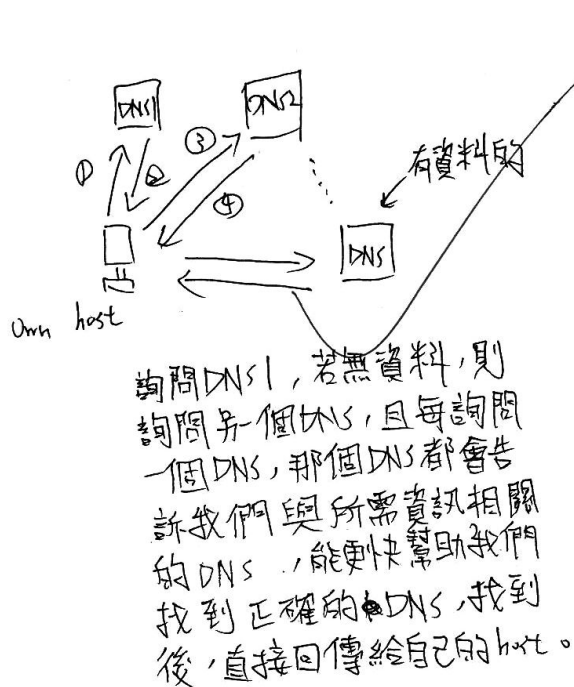 DNS1
DNS2
③
①
②
④
有資料的
DNS
Own host
詢問DNS1,若無資料,則
詢問另一個DNS,且每詢問
一個DNS,那個DNS都會告
訴我們與所需資訊相關
的DNS,能更快幫助我們
找到正確的DNS,找到
後,直接回傳給自己的host。